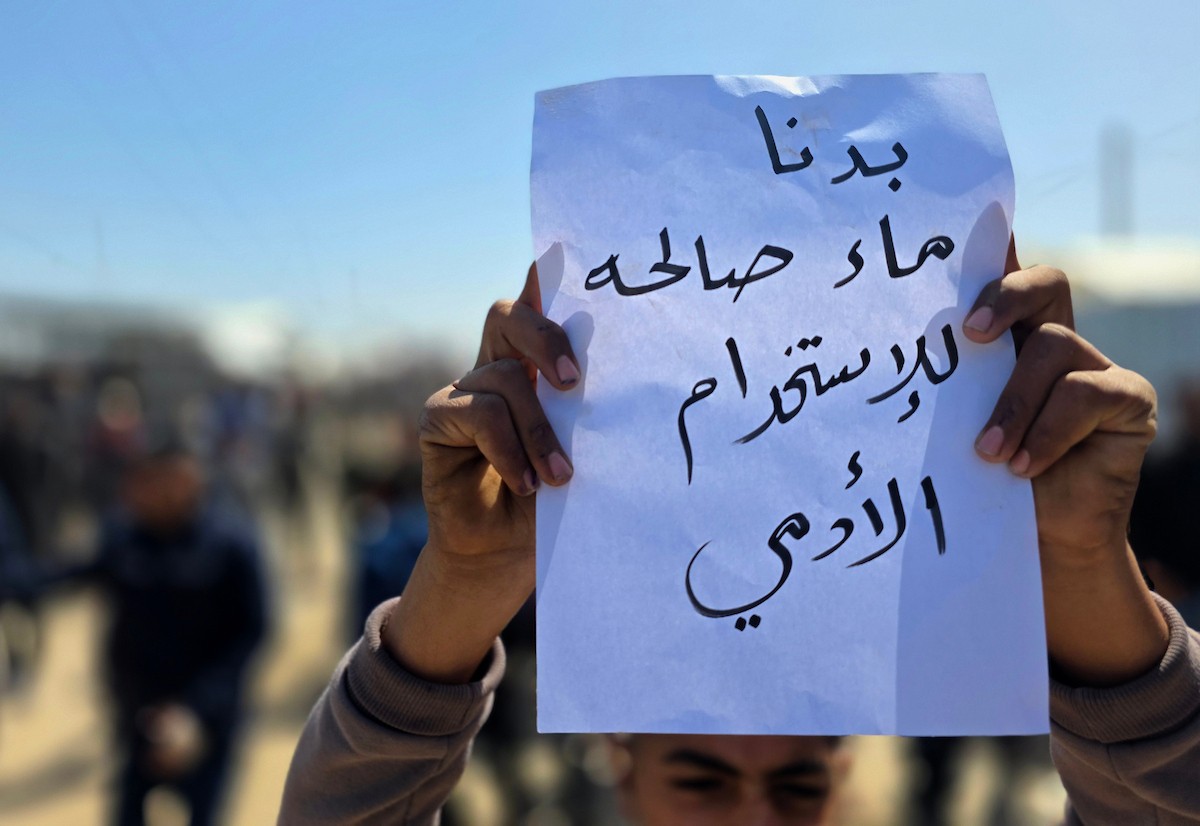 بدنا
ماء صالحه
للإستخدام
الأدمي